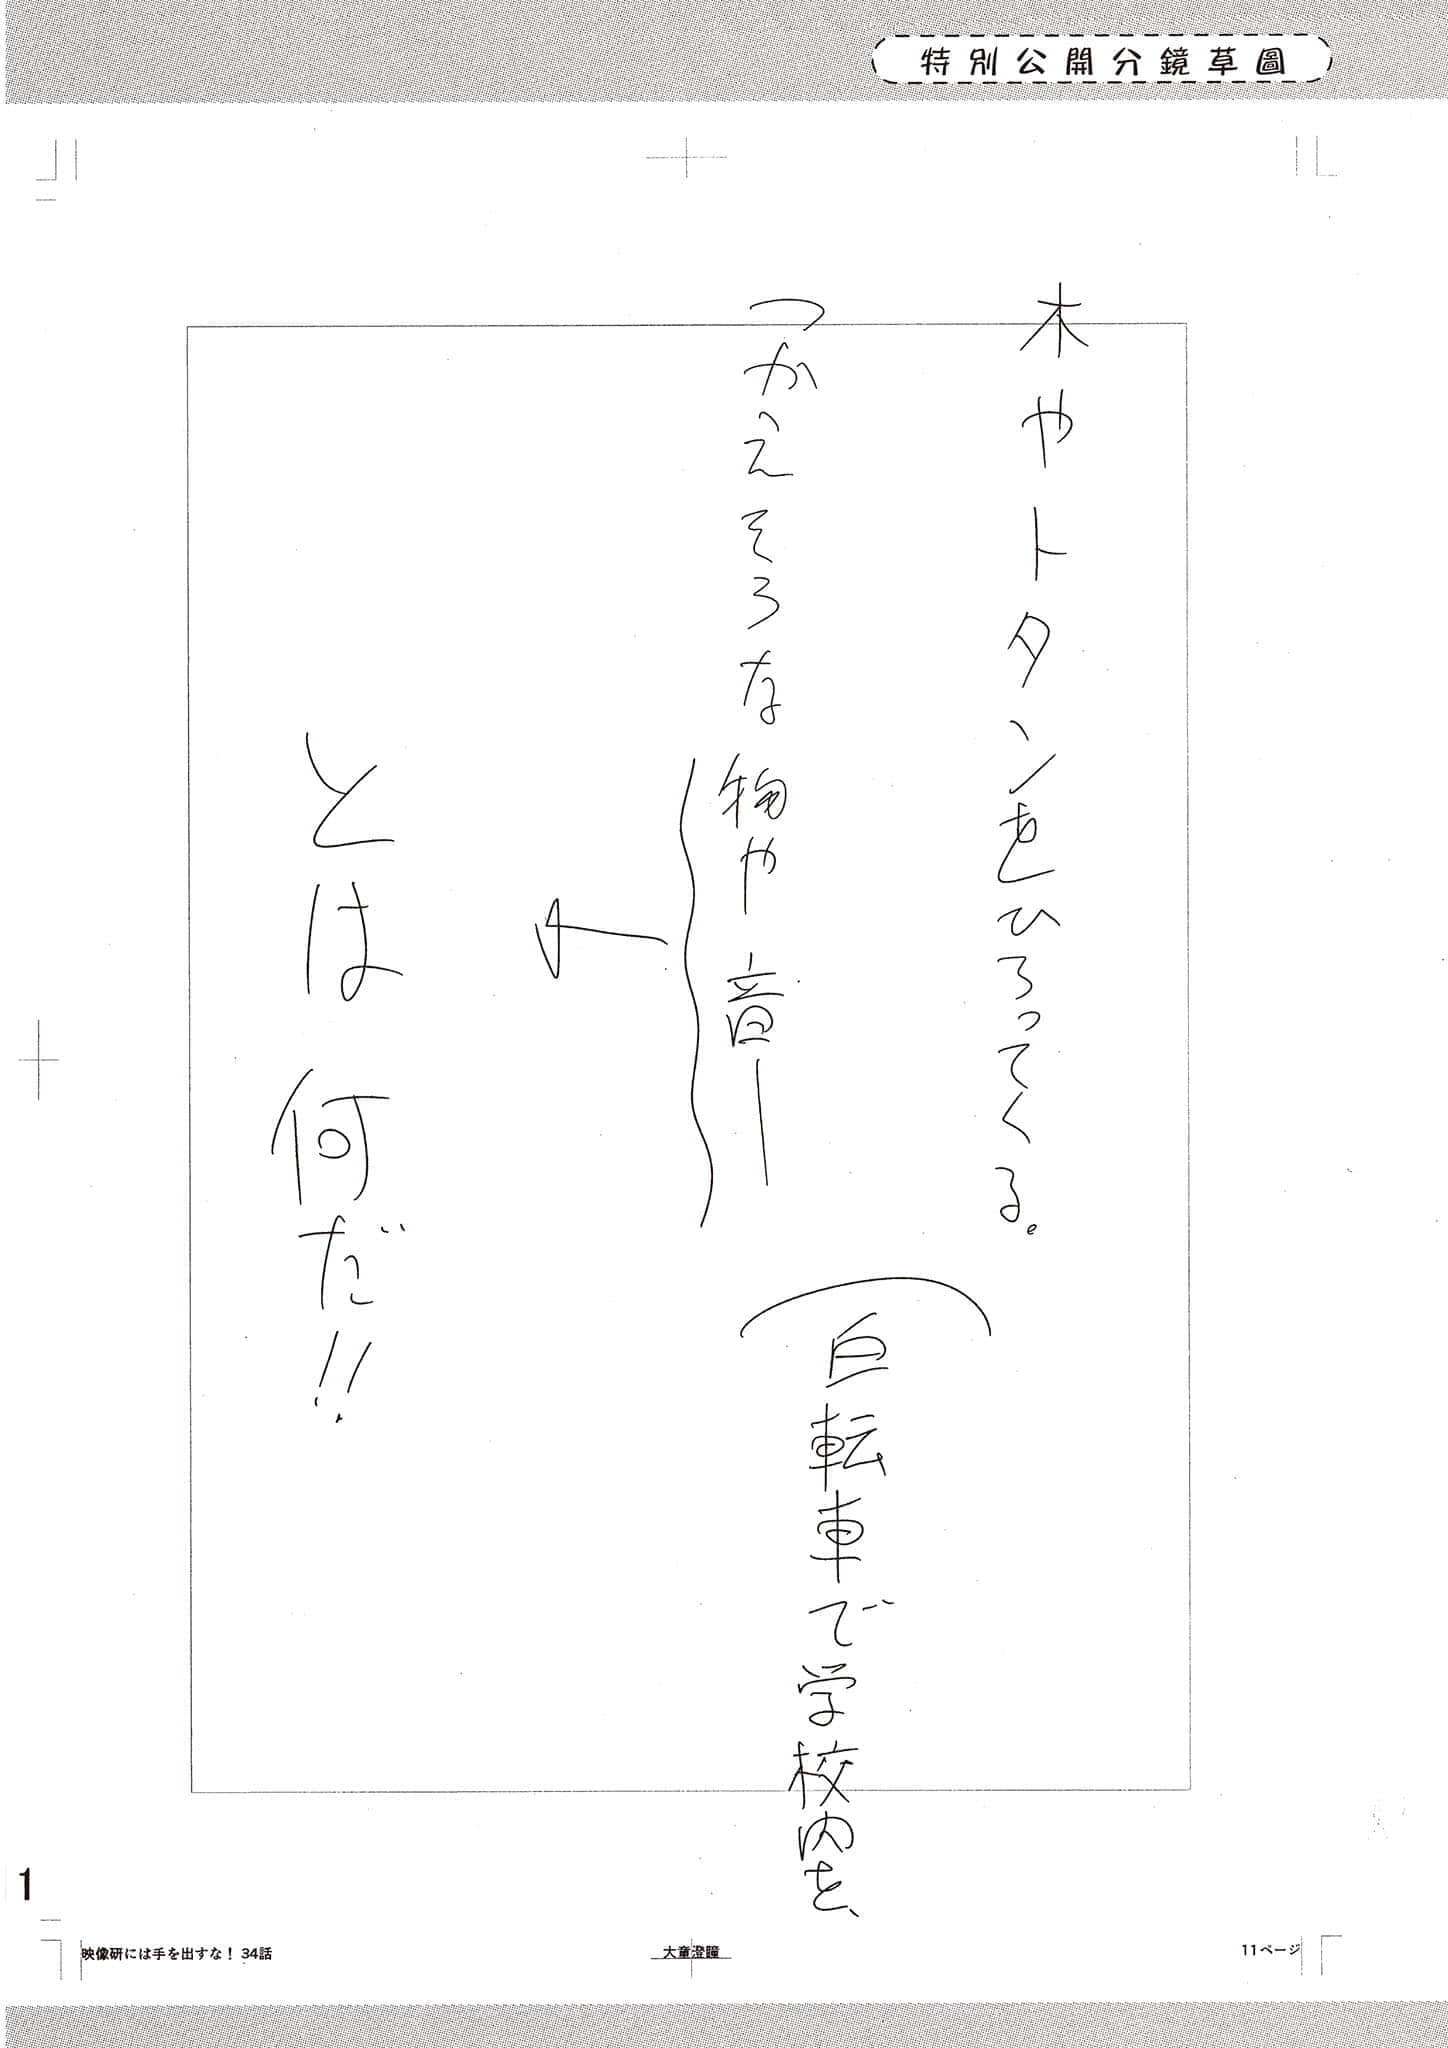 特別公開分鏡草圖
木やトタンをひろってくる。
つかえそうな物や音―
（自転車で学校内を、
とは何だ!!
1
映像研には手を出すな！ 34話
大童澄瞳
11ページ